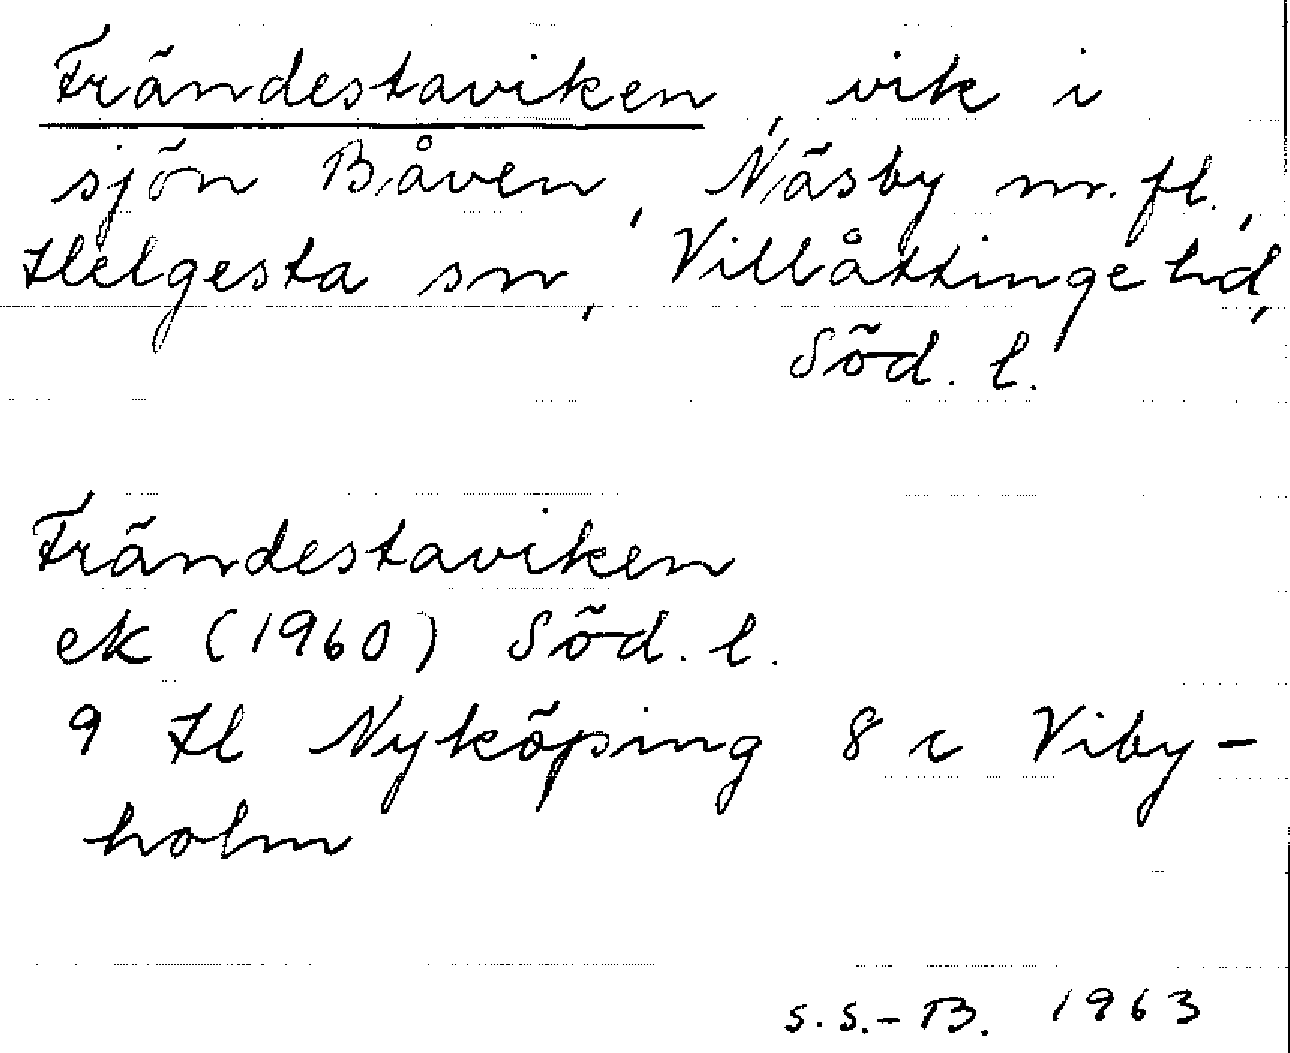 Frändestaviken, vik i
sjön Båven, Näsby m. fl.,
Helgesta sn, Villåttinge hd,
Söd. l.
Frändestaviken
ek (1960) Söd. l.
9 H Nyköping 8 c Viby-
holm
S.S.-B. 1963